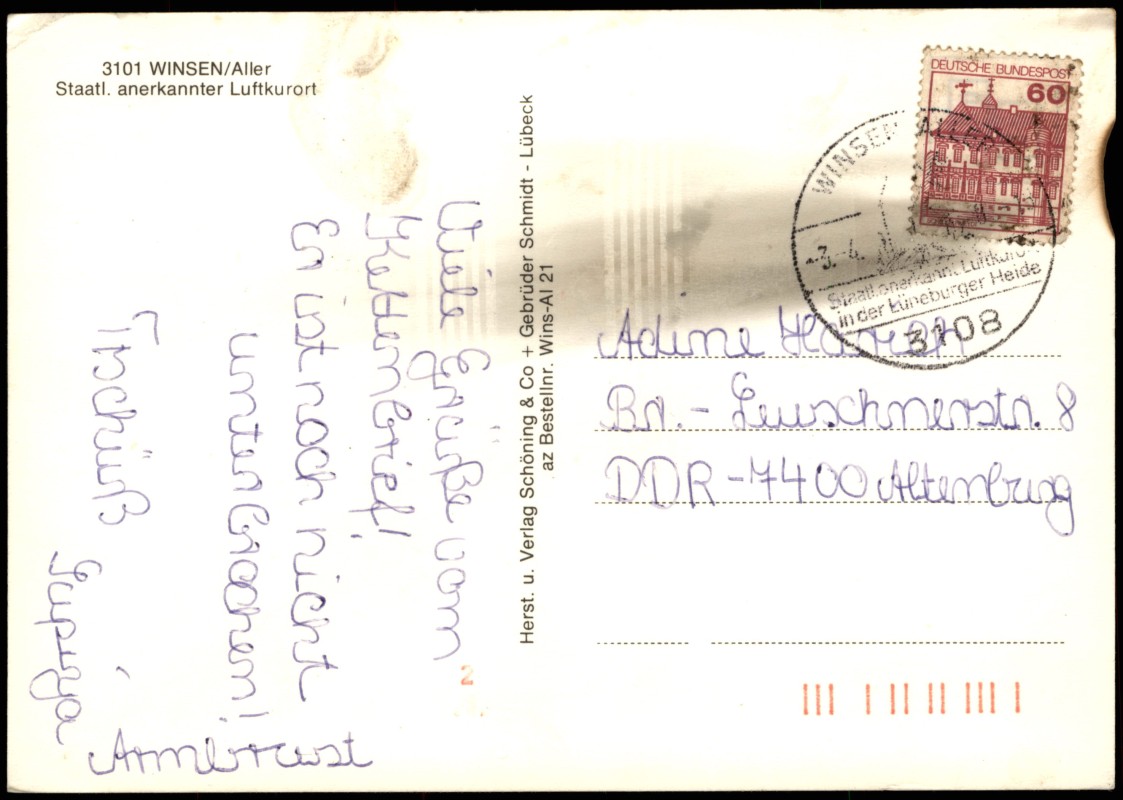 3101 WINSEN/Aller
Staatl. anerkannter Luftkurort
Viele Grüße vom
Kettenbrief!
Er ist noch nicht
unterbrochen!
Tschüß
Armbrust
Herst. u. Verlag Schöning & Co + Gebrüder Schmidt - Lübeck
az Bestellnr. Wins-Al 21
DEUTSCHE BUNDESPOST
60
WINSEN
-3.-4.
Staatl. anerkannt. Luftkurort
in der Lüneburger Heide
3108
Br. - Leuschnerstr. 8
DDR - 7400 Altenburg
2